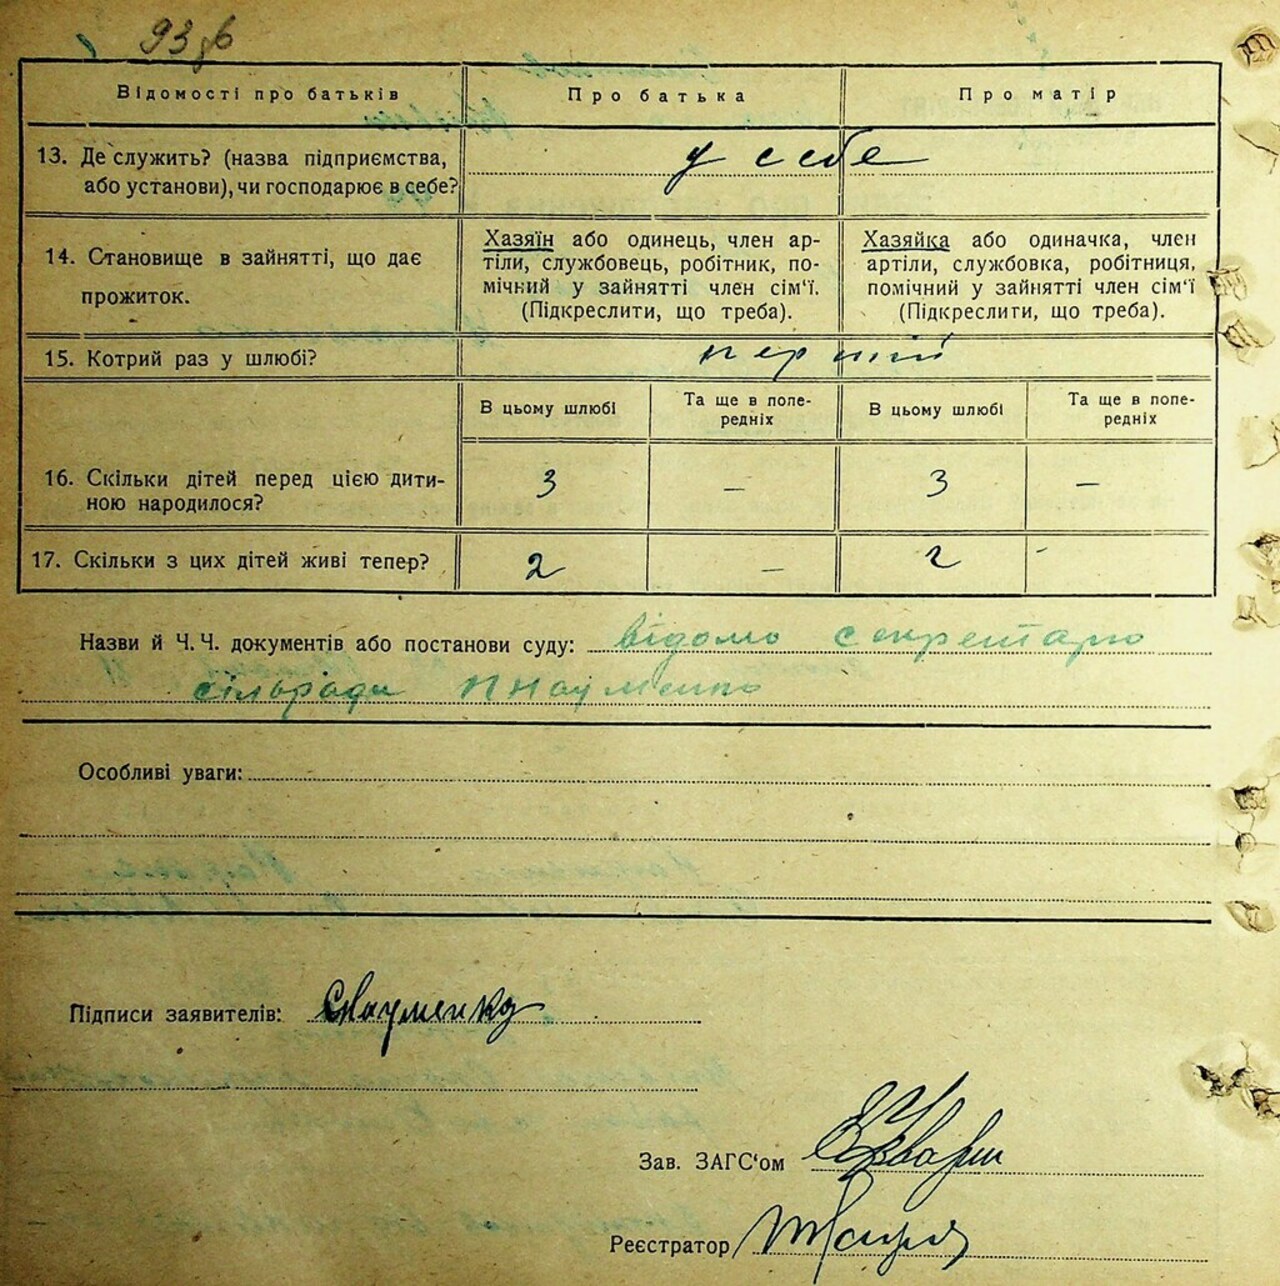 93
Відомості про батьків Про батька Про матір
13. Де служить? (назва підприємства,
або установи), чи господарює в себе?
у себе
14. Становище в зайнятті, що дає
прожиток.
Хазяїн або одинець, член ар-
тіли, службовець, робітник, по-
мічний у зайнятті член сім'ї.
(Підкреслити, що треба).
Хазяйка або одиначка, член
артіли, службовка, робітниця,
помічний у зайнятті член сім'ї
(Підкреслити, що треба).
15. Котрий раз у шлюбі? перший
В цьому шлюбі
Та ще в попе-
редніх
В цьому шлюбі
Та ще в попе-
редніх
16. Скільки дітей перед цією дити-
ною народилося?
3 – 3 –
17. Скільки з цих дітей живі тепер? 2 – 2 -
Назви й Ч. Ч. документів або постанови суду: відомо секретарю
сільради Науменко
Особливі уваги:
Підписи заявителів: Науменко
Зав. ЗАГС'ом
Реєстратор